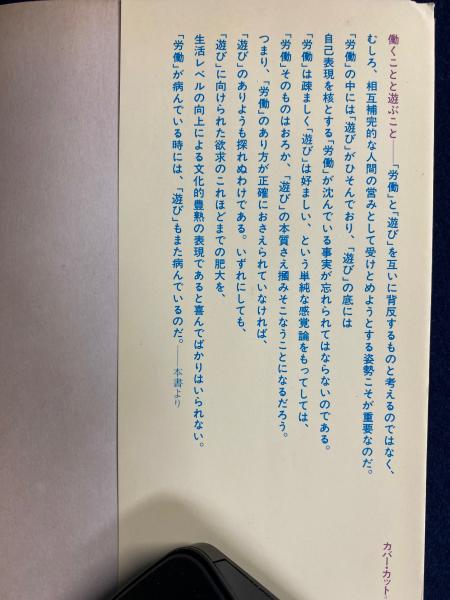 働くことと遊ぶこと――「労働」と「遊び」を互いに背反するものと考えるのではなく、
むしろ、相互補完的な人間の営みとして受けとめようとする姿勢こそが重要なのだ。
「労働」の中には「遊び」がひそんでおり、「遊び」の底には
自己表現を核とする「労働」が沈んでいる事実が忘れられてはならないのである。
「労働」は疎ましく「遊び」は好ましい、という単純な感覚論をもってしては、
「労働」そのものはおろか、「遊び」の本質さえ摑みそこなうことになるだろう。
つまり、「労働」のあり方が正確におさえられていなければ、
「遊び」のありようも探れぬわけである。いずれにしても、
「遊び」に向けられた欲求のこれほどまでの肥大を、
生活レベルの向上による文化的豊熟の表現であると喜んでばかりはいられない。
「労働」が病んでいる時には、「遊び」もまた病んでいるのだ。――本書より
カバー・カット